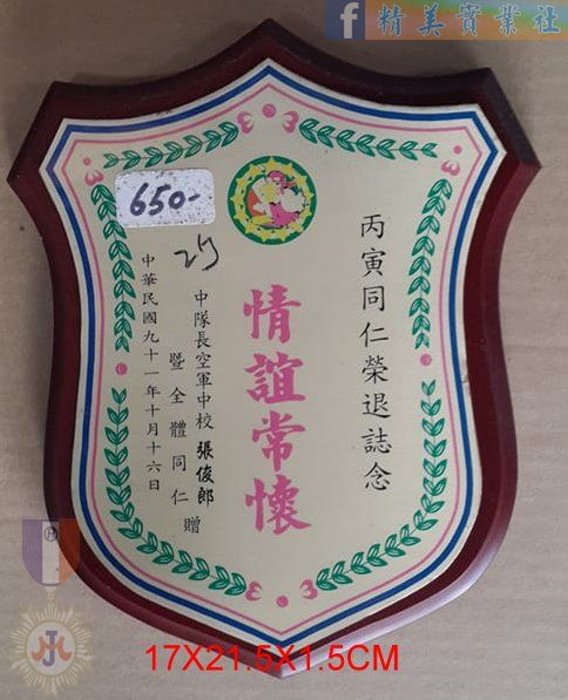 精美實業社
650-
丙寅同仁榮退誌念
情誼常懷
中隊長空軍中校 張俊郎
暨全體同仁 贈
中華民國九十一年十月十六日
17X21.5X1.5CM